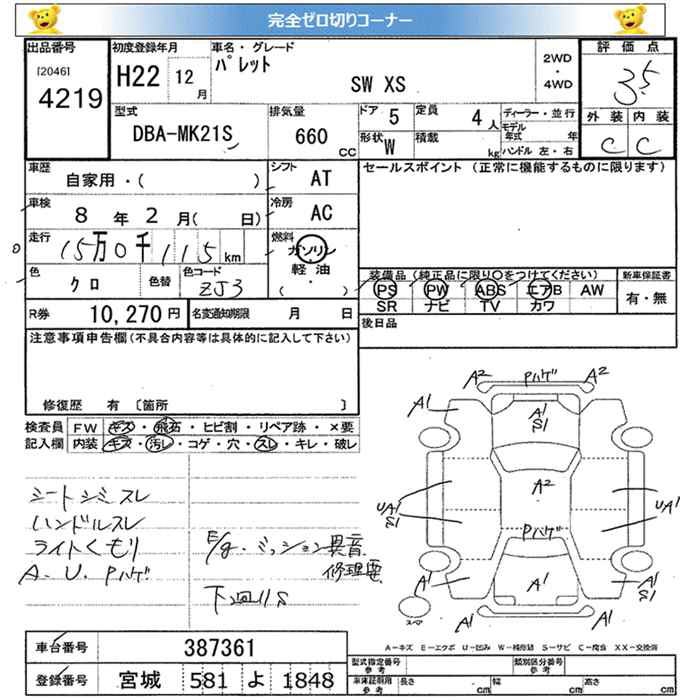 完全ゼロ切りコーナー
出品番号 [2046] 4219
初度登録年月 H22 12月
車名・グレード パレット SW XS
2WD・4WD
評価点 3.5
外装 C 内装 C
型式 DBA-MK21S
排気量 660 CC
ドア 5 定員 4人
形状 W 積載 kg
ディーラー・並行
モデル年式 年
ハンドル 左・右
車歴 自家用・( )
シフト AT
セールスポイント (正常に機能するものに限ります)
車検 8年2月( 日)
冷房 AC
走行 15万0千115km
燃料 ガソリン 軽油 ・( )
色 クロ 色替 色コード ZJ3
装備品(純正品に限り○をつけてください)
PS PW ABS エアB AW
SR ナビ TV カワ
新車保証書 有・無
R券 10,270円 名変通知期限 月 日
後日品
注意事項申告欄(不具合内容等は具体的に記入して下さい)
修復歴 有 〔箇所 〕
検査員記入欄
FW キズ・飛石・ヒビ割・リペア跡・×要
内装 キズ・汚レ・コゲ・穴・スレ・キレ・破レ
シートシミスレ
ハンドルスレ
ライトくもり
A.U.Pハゲ
E/g・ミッション異音
修理要
下廻りS
A2 Pハゲ A2
A1 A1 S1 A1
A2
UA1 S1 UA1
Pハゲ
A1 A1 A1 S1
スペア A1 A1
A-キズ E-エクボ U-凹み W-補修跡 S-サビ C-腐食 XX-交換済
車台番号 387361
登録番号 宮城 581 よ 1848
型式指定番号 参考 類別区分番号 参考
車体証期間 参考 長さ cm 幅 cm 高さ cm